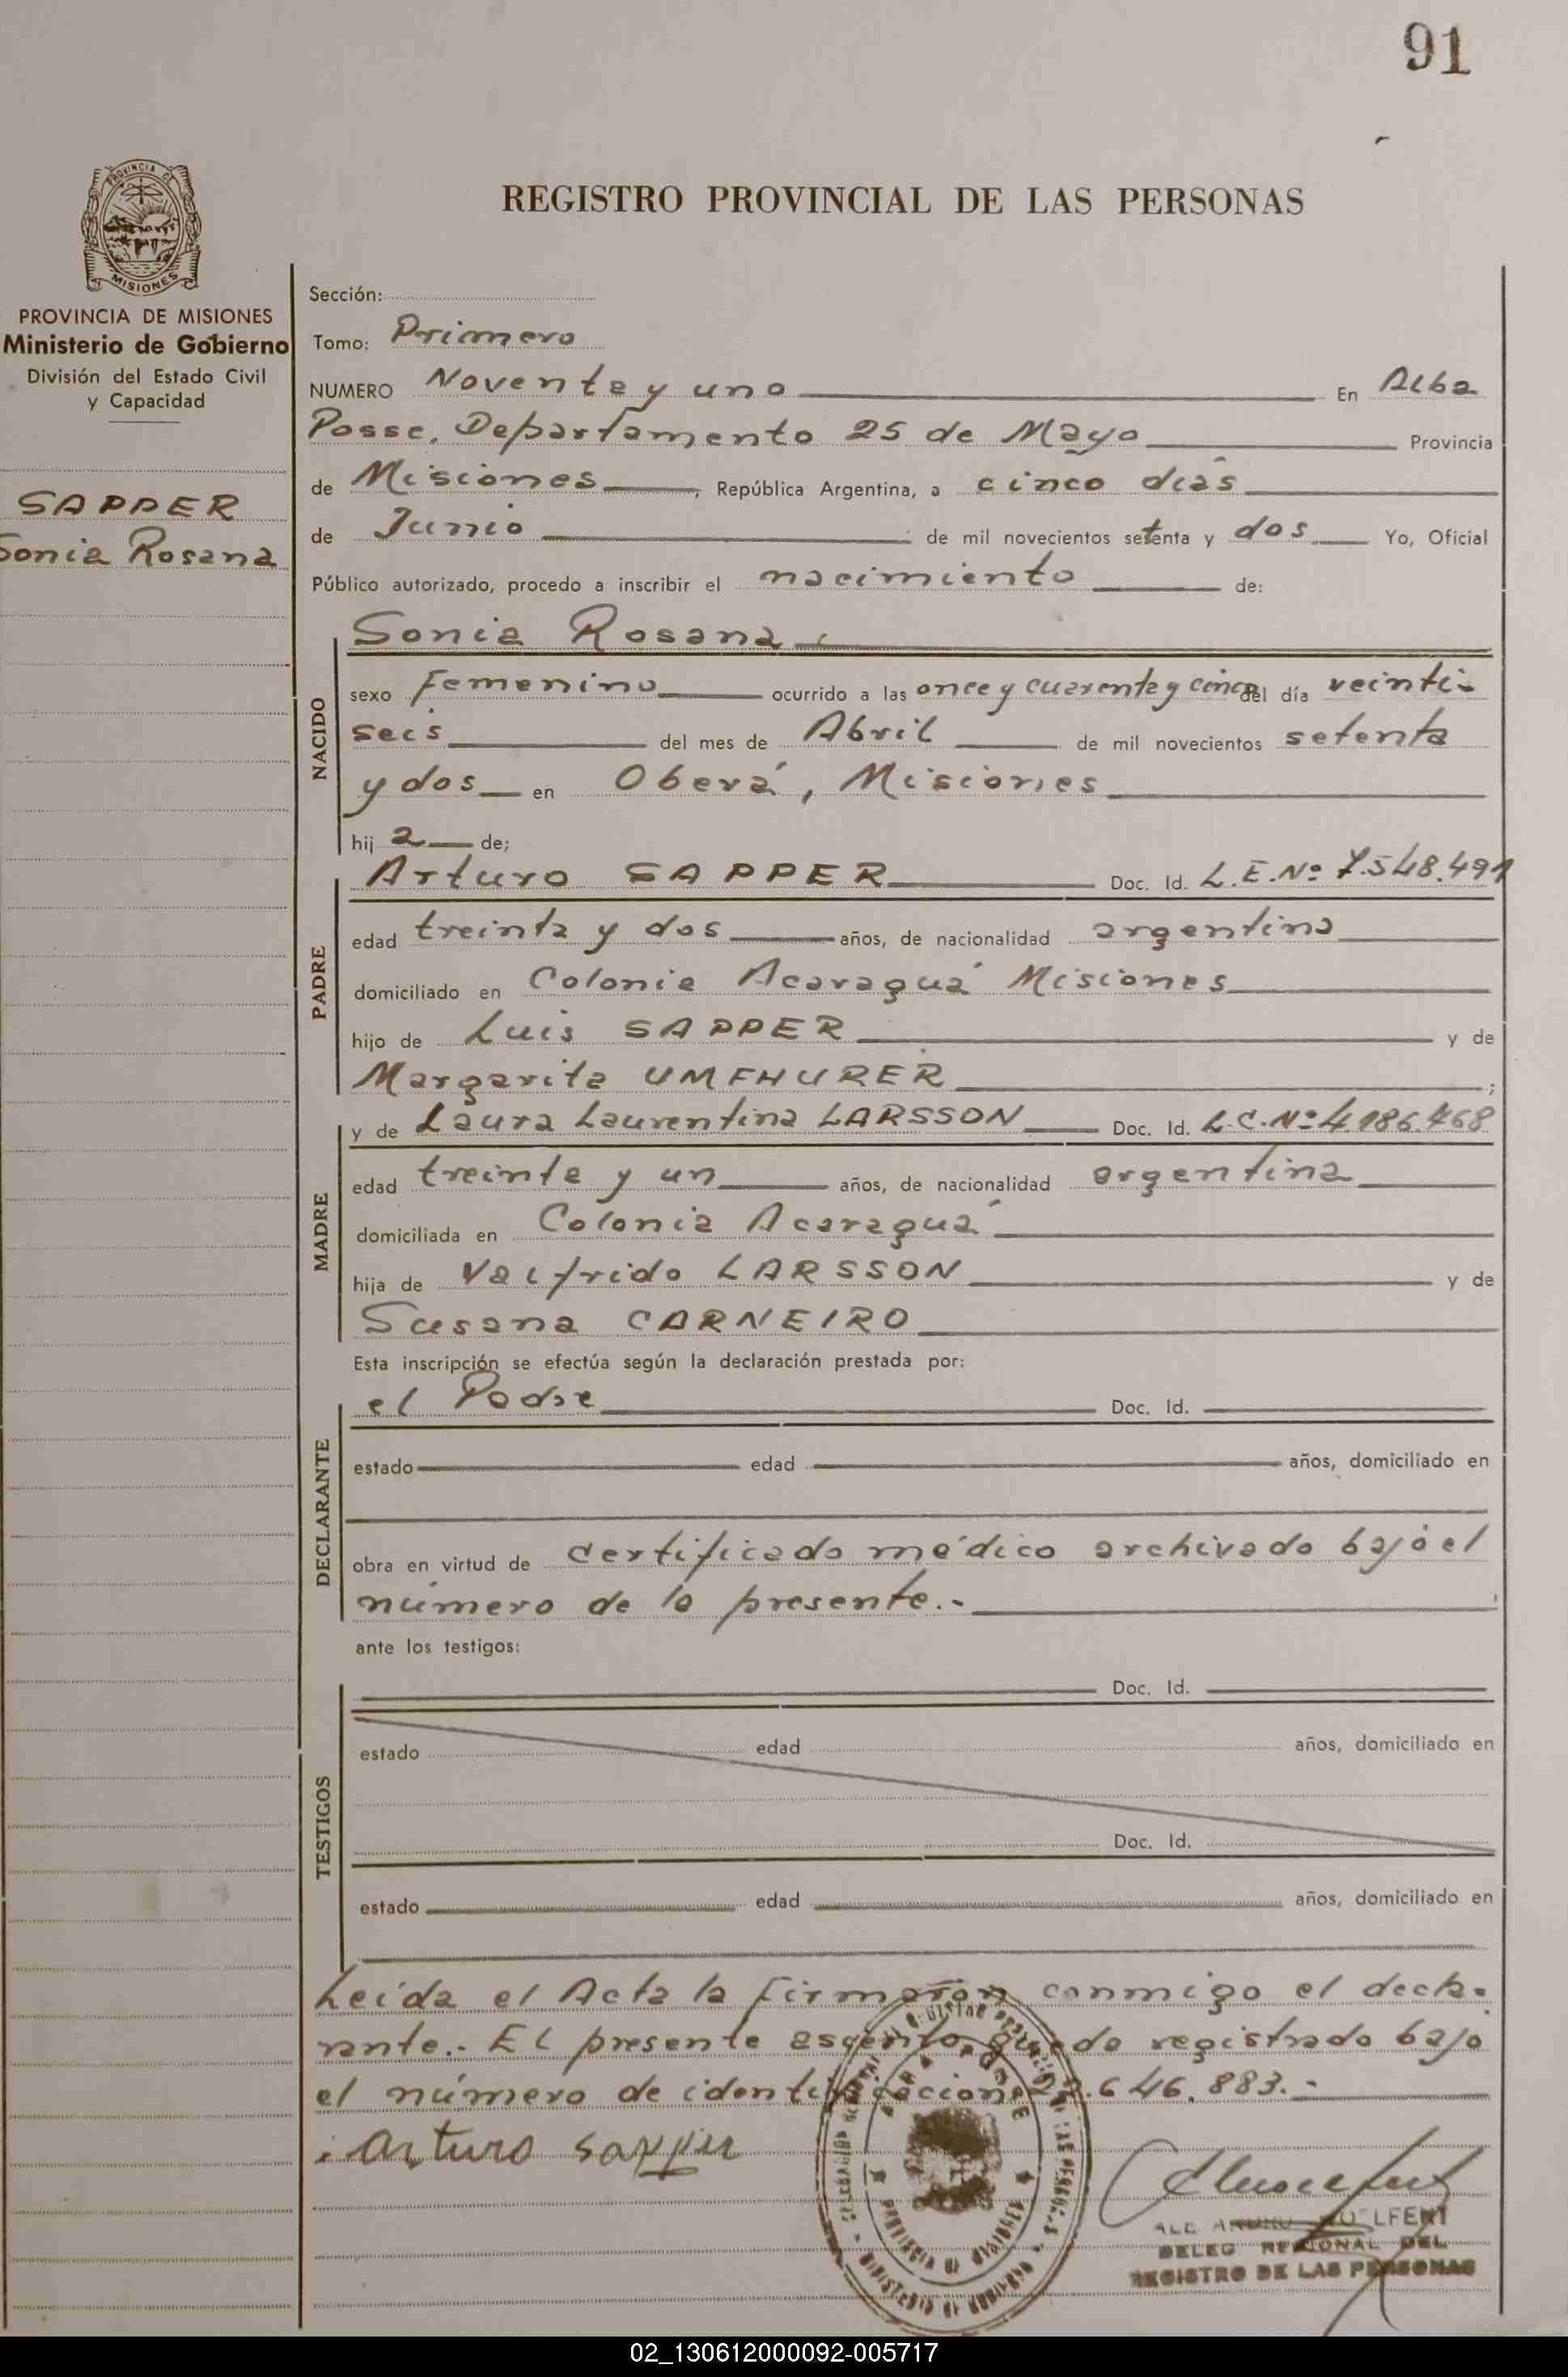 91
REGISTRO PROVINCIAL DE LAS PERSONAS
PROVINCIA DE
MISIONES
PROVINCIA DE MISIONES
Ministerio de Gobierno
División del Estado Civil
y Capacidad
SAPPER
Sonia Rosana
Sección:
Tomo: Primero
NUMERO Noventa y uno En Alba
Posse, Departamento 25 de Mayo Provincia
de Misiones, República Argentina, a cinco días
de Junio de mil novecientos setenta y dos Yo, Oficial
Público autorizado, procedo a inscribir el nacimiento de:
Sonia Rosana
NACIDO
sexo femenino ocurrido a las once y cuarenta y cinco del día veinti-
seis del mes de Abril de mil novecientos setenta
y dos en Oberá, Misiones
hij a de;
Arturo SAPPER Doc. Id. L.E.Nº 7.548.491
PADRE
edad treinta y dos años, de nacionalidad argentino
domiciliado en Colonia Acaraguá Misiones
hijo de Luis SAPPER y de
Margarita UMFHURER;
y de Laura Laurentina LARSSON Doc. Id. L.C.Nº 4.986.468
MADRE
edad treinta y un años, de nacionalidad argentina
domiciliada en Colonia Acaraguá
hija de Valfrido LARSSON y de
Susana CARNEIRO
Esta inscripción se efectúa según la declaración prestada por:
el Padre Doc. Id.
DECLARANTE
estado edad años, domiciliado en
obra en virtud de certificado médico archivado bajo el
número de la presente.-
ante los testigos:
Doc. Id.
TESTIGOS
estado edad años, domiciliado en
Doc. Id.
estado edad años, domiciliado en
Leída el Acta la firmaron conmigo el decla-
rante.- El presente asiento queda registrado bajo
el número de identificación 646.883.-
Arturo Sapper
DELEG REGIONAL DEL
REGISTRO DE LAS PERSONAS
02_130612000092-005717